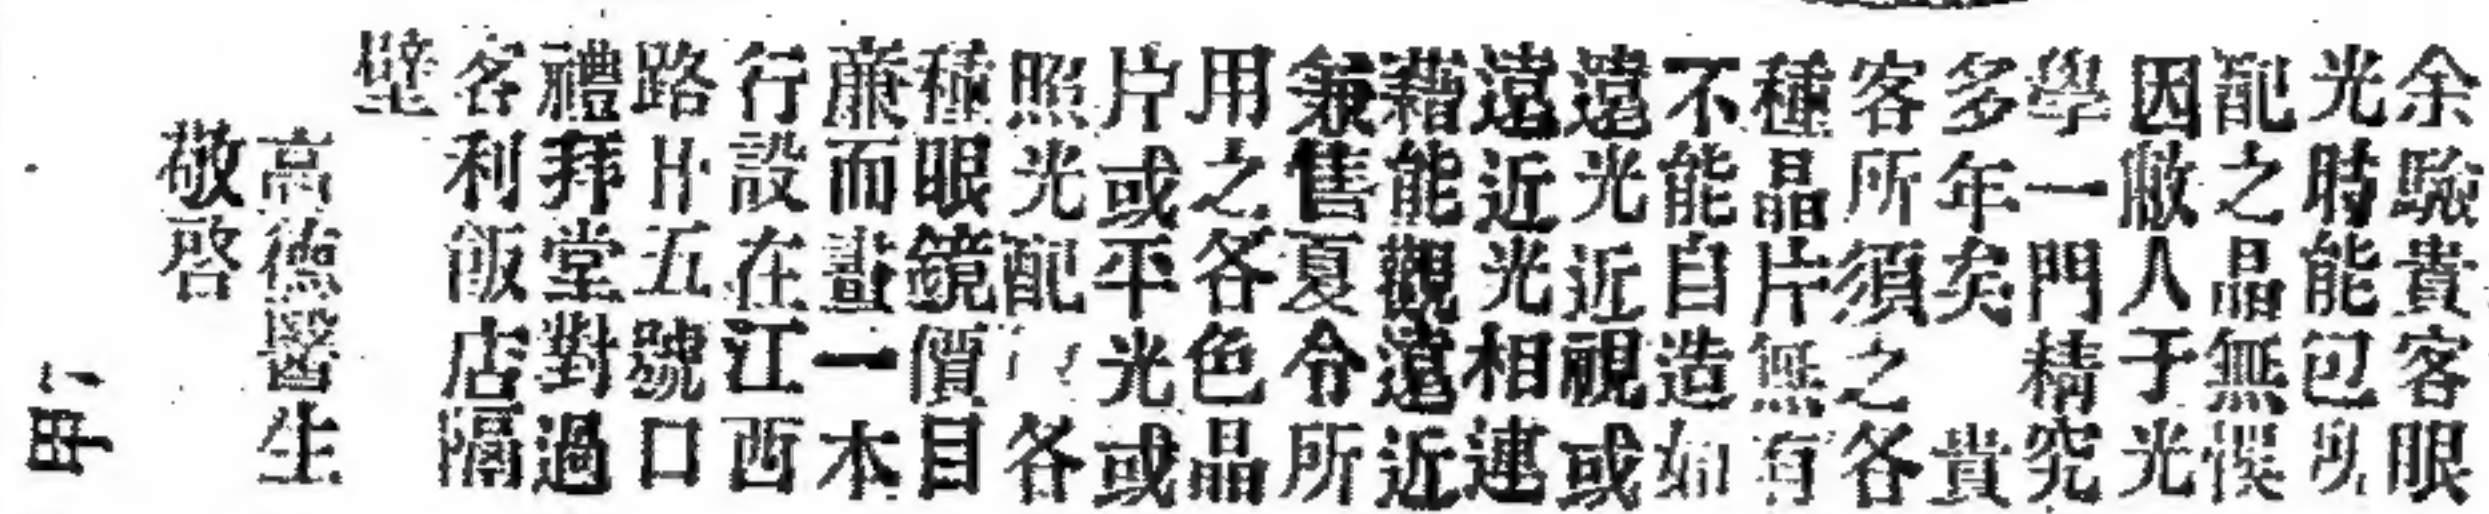 余驗貴客眼
光時能包所
配之晶無悞
因敝人于光
學一門精究
多年矣　貴
客所須之各
種晶片無有
不能自造如
遠光近視或
遠近光相連
藉能觀遠近
兼售夏令所
用之各色晶
片或平光或
照光配 各
種眼鏡價目
亷而畫一本
行設在江西
路廿五號口
禮拜堂對過
客利飯店隔
壁
高德醫生
敬啓